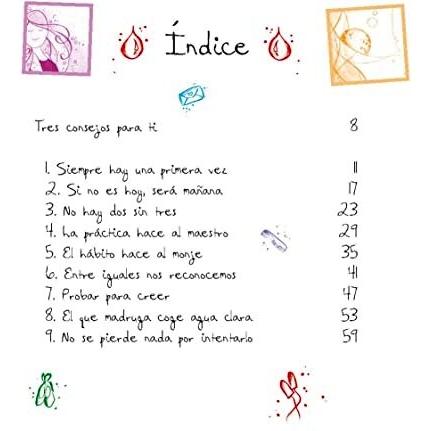 Índice
Tres consejos para ti 8
1. Siempre hay una primera vez 11
2. Si no es hoy, será mañana 17
3. No hay dos sin tres 23
4. La práctica hace al maestro 29
5. El hábito hace al monje 35
6. Entre iguales nos reconocemos 41
7. Probar para creer 47
8. El que madruga coge agua clara 53
9. No se pierde nada por intentarlo 59